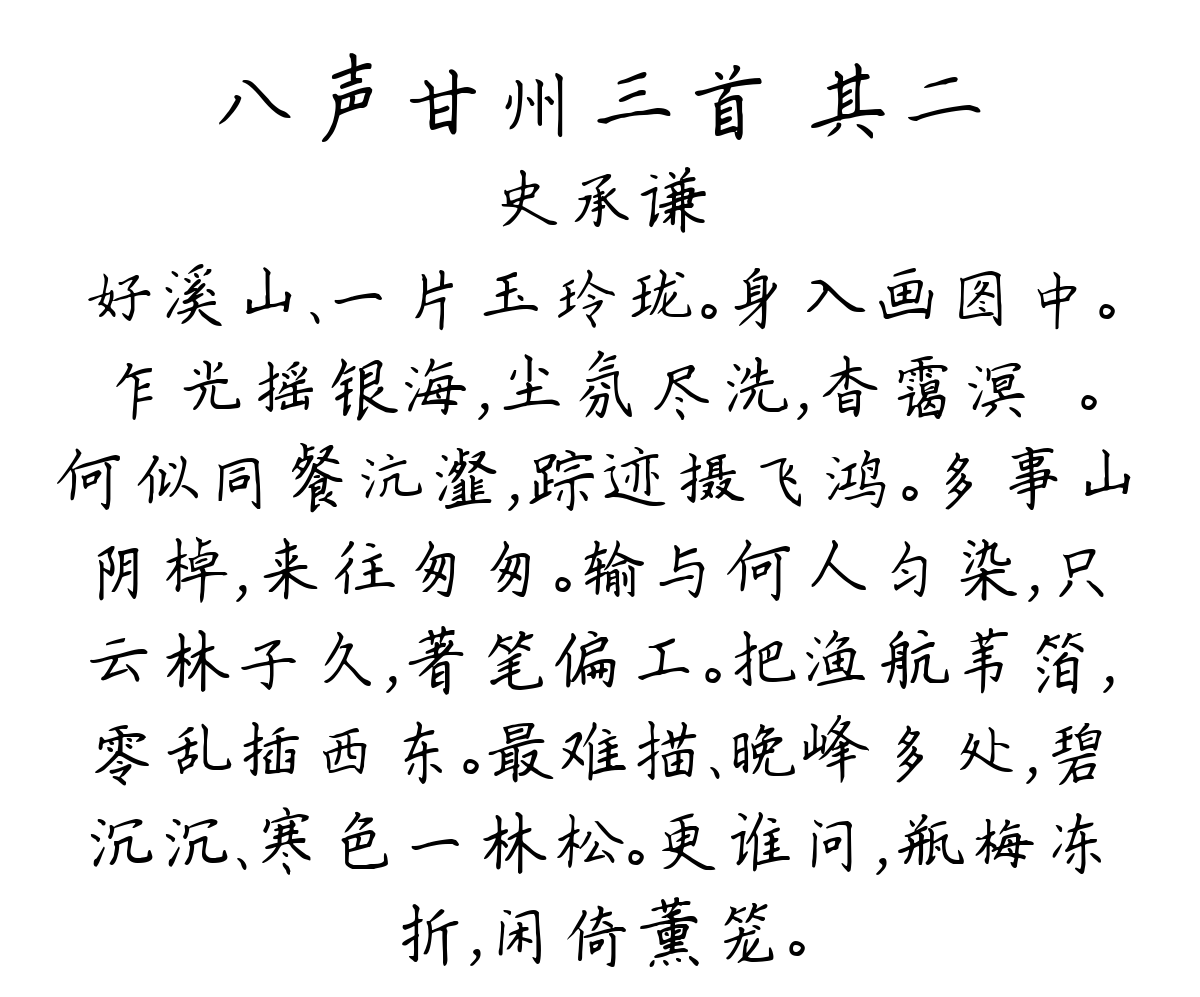 八声甘州三首 其二
史承谦
好溪山、一片玉玲珑。身入画图中。
乍光摇银海,尘氛尽洗,杳霭溟 。
何似同餐沆瀣,踪迹摄飞鸿。多事山
阴棹,来往匆匆。输与何人匀染,只
云林子久,著笔偏工。把渔航苇箔,
零乱插西东。最难描、晚峰多处,碧
沉沉、寒色一林松。更谁问,瓶梅冻
折,闲倚薰笼。